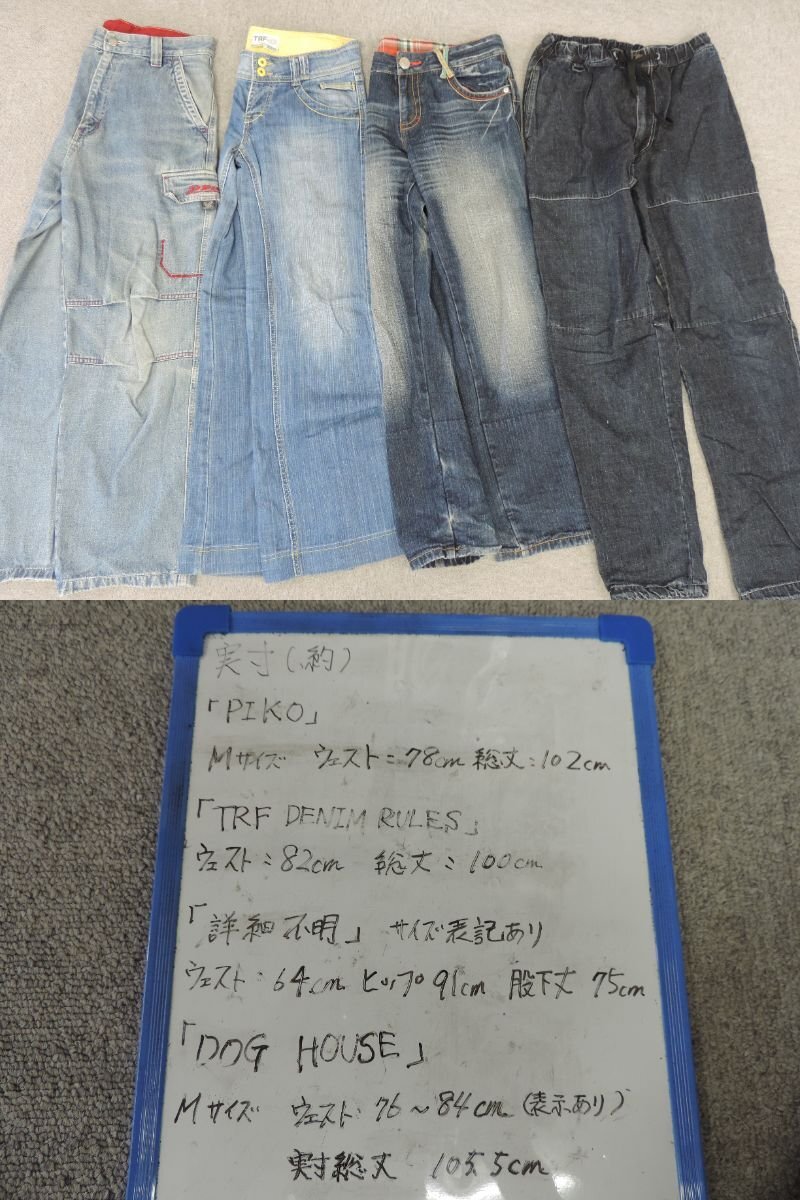 TRF
実寸(約)
「PIKO」
Mサイズ ウェスト:78cm 総丈:102cm
「TRF DENIM RULES」
ウェスト:82cm 総丈:100cm
「詳細不明」 サイズ表記あり
ウェスト:64cm ヒップ91cm 股下丈 75cm
「DOG HOUSE」
Mサイズ ウェスト 76〜84cm (表示あり)
実寸総丈 105.5cm